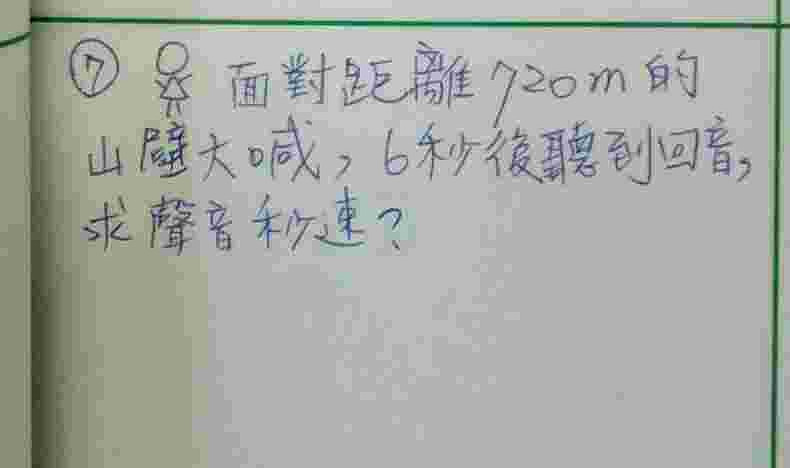 ⑦ 面對距離720m的
山壁大喊,6秒後聽到回音,
求聲音秒速?